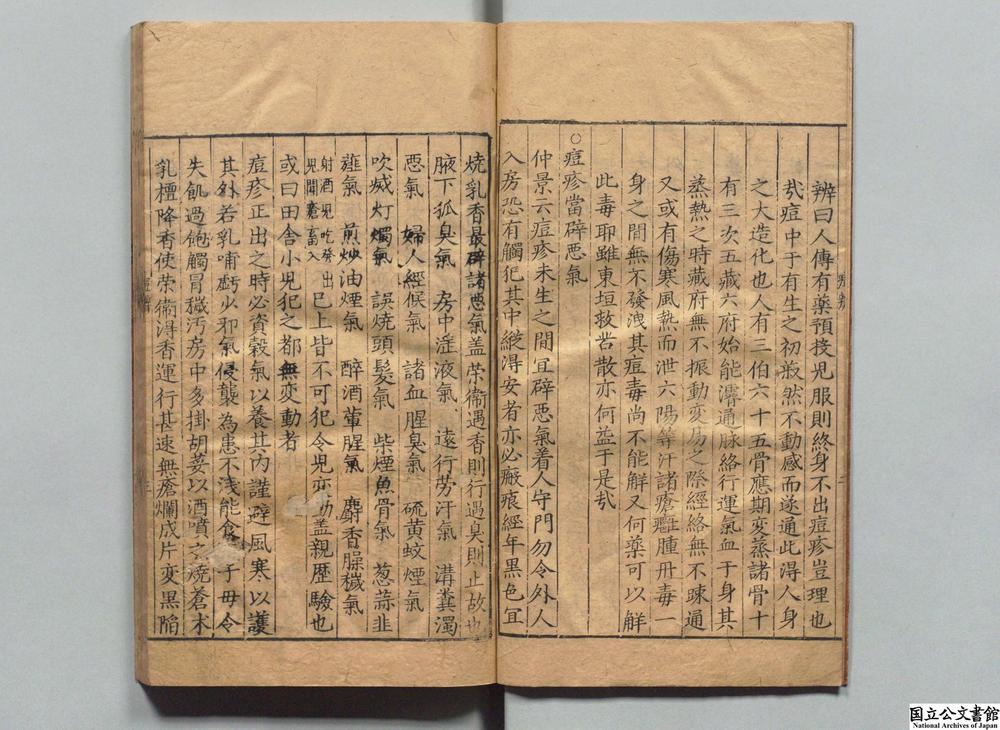 辨曰人傳有藥預投児服則終身不出痘疹豈理也
㢤痘中于有生之初㪚然不動感而遂通此得人身
之大造化也人有三伯六十五骨應期変蒸諸骨十
有三次五藏六府始能濬通脉絡行運氣血于身其
蒸熱之時藏府無不振動変易之際經絡無不踈通
又或有傷寒風熱而泄六陽等汗諸瘡癰腫丹毒一
身之間無不發洩其痘毒尚不能解又何藥可以解
此毒耶雖東垣救苦散亦何益于是㢤
○痘疹當辟惡氣
仲景云痘疹未生之間宜辟惡氣着人守門勿令外人
入房恐有觸犯其中縱得安者亦必瘢痕經年黒色宜
燒乳香最辟諸惡氣盖荣衞遇香則行遇臭則止故也
腋下狐臭氣　房中淫液氣　遠行劳汗氣　溝糞濁
惡氣　婦人經候氣　諸血腥臭氣　硫黄蚊煙氣
吹滅灯燭氣　誤燒頭髮氣　柴煙魚骨氣　葱蒜韭
薤氣　煎炒油煙氣　醉酒葷腥氣　麝香臊穢氣
射酒児吃發出
児聞竃畜入
已上皆不可犯令児変動盖親歴驗也
或曰田舎小児犯之都無変動者
痘疹正出之時必資穀氣以養其内謹避風寒以護
其外若乳哺虧少邪氣侵襲為患不浅能食 子毋令
失飢過飽觸冒穢汚房中多掛胡荽以酒噴之燒蒼朮
乳檀降香使荣衞得香運行甚速無瘡爛成片変黒陷
国立公文書館
National Archives of Japan